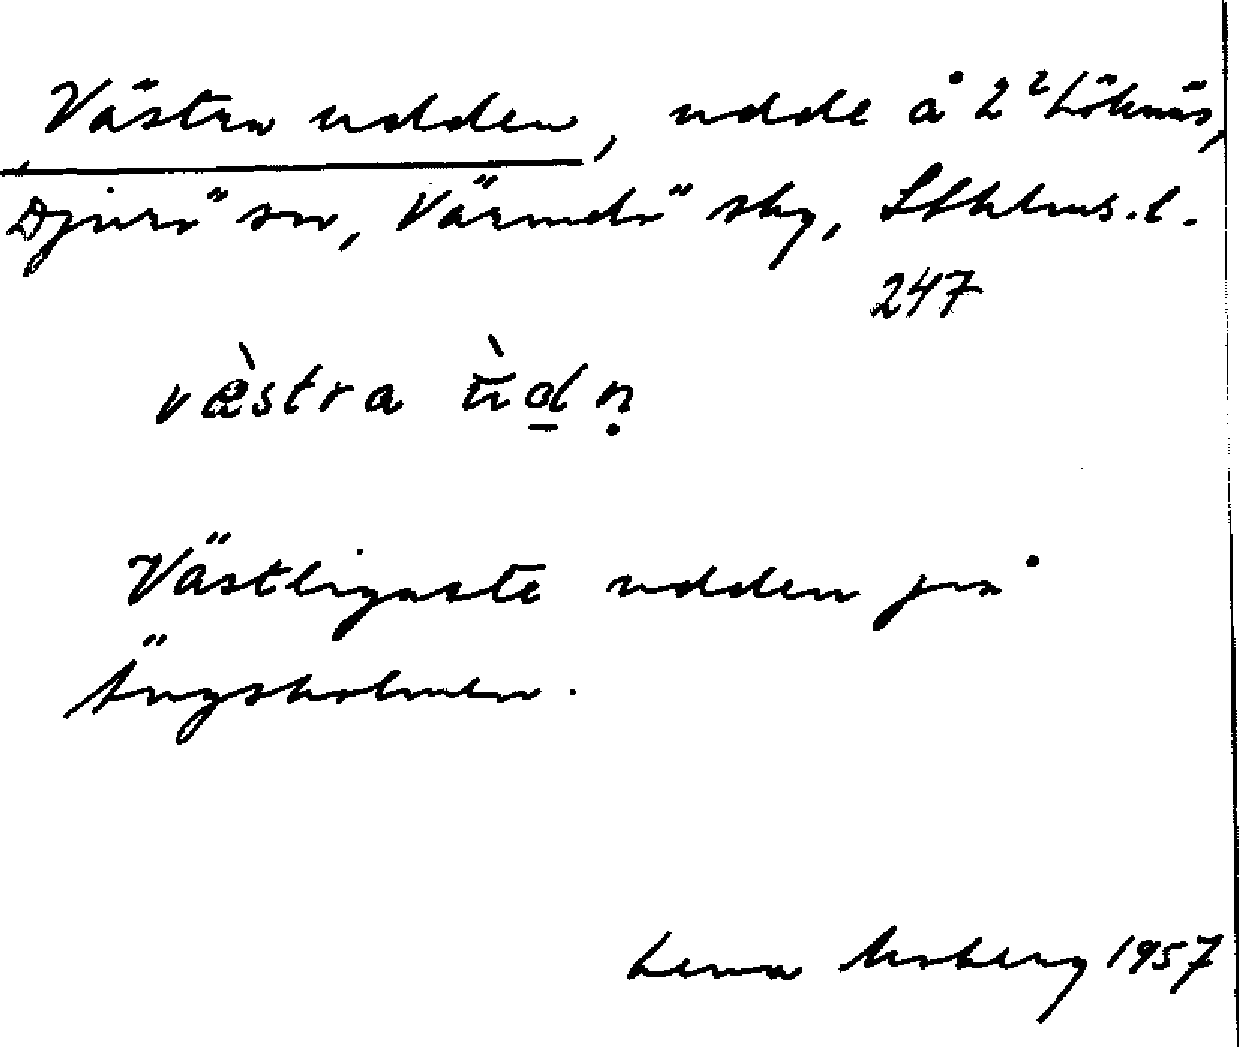 Västra udden, udde å 2² Löknäs,
Djurö sn, Värmdö skg, Sthlms. l.
247
væ̀stra ὼd̲ṇ
Västligaste udden på
Ängsholmen.
Lena Moberg 1957